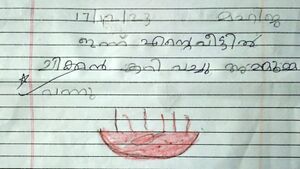 17/12/23
ഇന്ന് എന്റെ വീട്ടിൽ
ചിക്കൻ കറി വച്ചു അമ്മുമ്മ
വന്നു